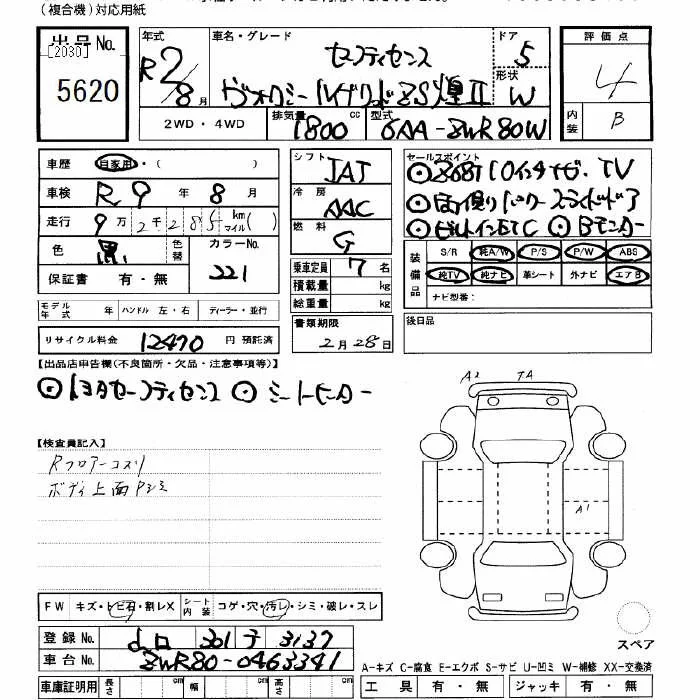 (複合機)対応用紙
出品No. [2030] 5620
年式 R2/8月
車名・グレード セーフティセンス
ヴォクシー ハイブリッド ZS煌II
ドア 5
形状 W
評価点 4
内装 B
2WD・4WD
排気量 1800 cc
型式 6AA-ZWR80W
車歴 自家用・( )
車検 R9年8月
走行 9万2千285km マイル( )
色 黒 色替 カラーNo. 221
保証書 有・無
モデル年式 年 ハンドル 左・右 ディーラー・並行
リサイクル料金 12470 円 預託済
シフト IAT
冷房 AAC
燃料 G
乗車定員 7 名
積載量 kg
総重量 kg
書類期限 2月28日
セールスポイント
10インチナビ・TV
両側パワースライドドア
ビルトインETC ◎Bモニター
装備品 S/R 純A/W P/S P/W ABS
純TV 純ナビ 革シート 外ナビ エアB
ナビ型番:
後日品
【出品店申告欄(不良箇所・欠品・注意事項等)】
◎トヨタセーフティセンス ◎シートヒーター
【検査員記入】
Rフロアーコスリ
ボディ上面Pシミ
A2 TA
A1
FW キズ・トビ石・割レX シート内装 コゲ・穴・汚レ・シミ・破レ・スレ
登録No. 301 3137
車台No. ZWR80-0463341
車庫証明用 長さ cm 幅 cm 高さ cm
スペア
A-キズ C-腐食 E-エクボ S-サビ U-凹ミ W-補修 XX-交換済
工具 有・無 ジャッキ 有・無